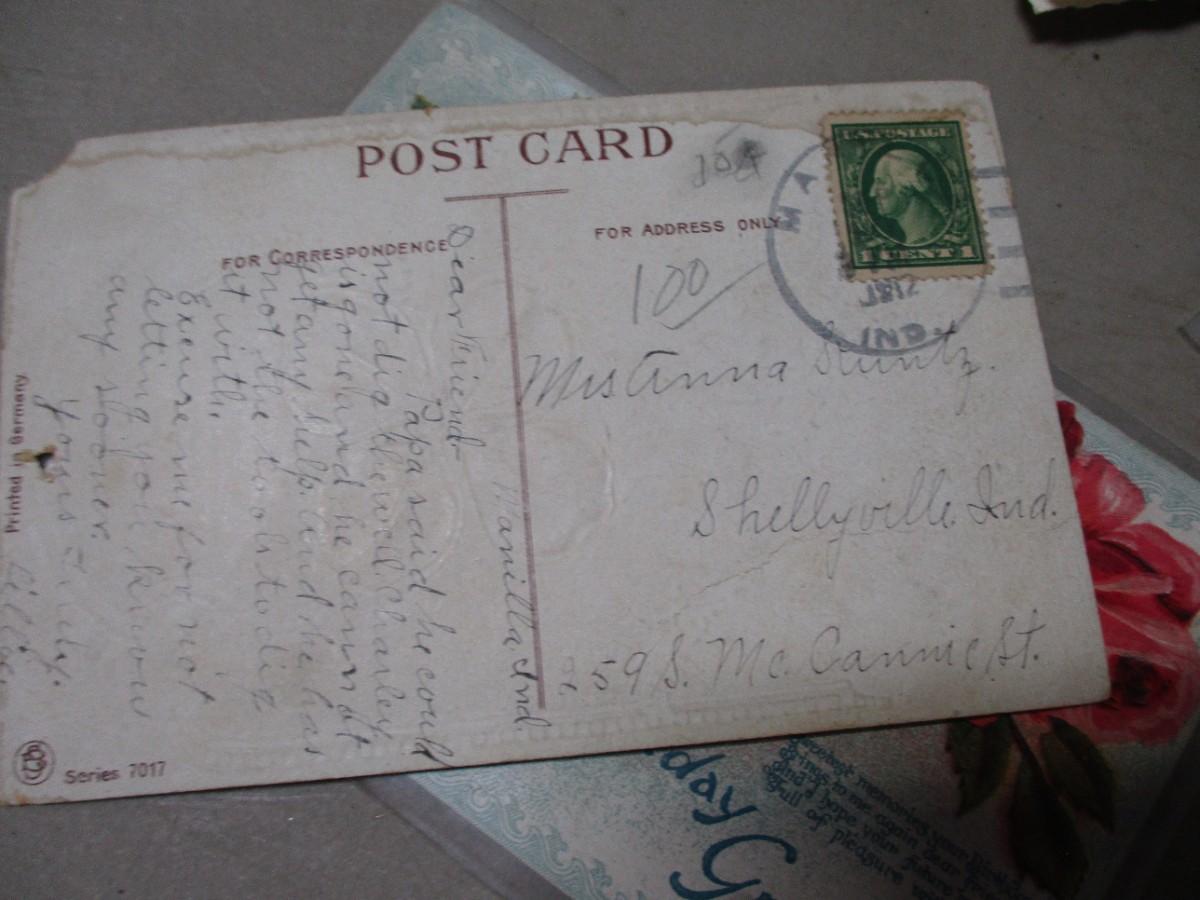 POST CARD
FOR CORRESPONDENCE
FOR ADDRESS ONLY
U.S. POSTAGE
1 CENT 1
MA
IND.
100
Mrs Anna
Shellyville, Ind.
59 S. Mc. Cannic St.
Manilla Ind.
Dear Friend-
Papa said he could
not dig the well. Charley
is gone and he cannot
get any help. and he has
not the tools to dig
it with.
Excuse me for not
letting you know
any sooner.
Yours
Printed in Germany
Series 7017
day
sweetest memories
brings to me again dear
and I hope your future
full of pleasure